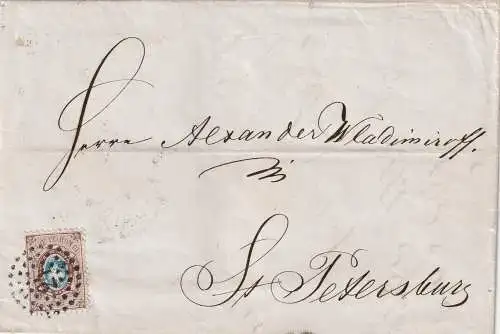 Herrn Alexander Wladimiroff.
in
St Petersburg